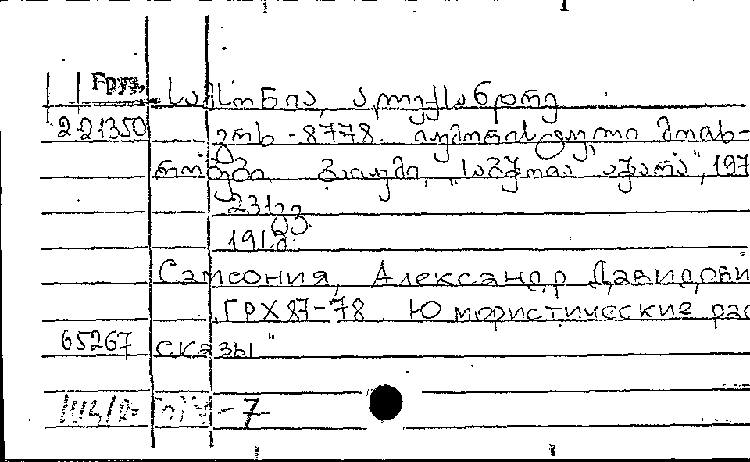 Груз.
სამსონია, ალექსანდრე
221350 გრხ-8778. იუმორისტული მოთხ-
რობები. ბათუმი, „საბჭოთა აჭარა", 197
231გვ.
191მ.
Самсония, Александр Давидови
ГРХ 87-78. Юмористические рас
65267 сказы"
-7